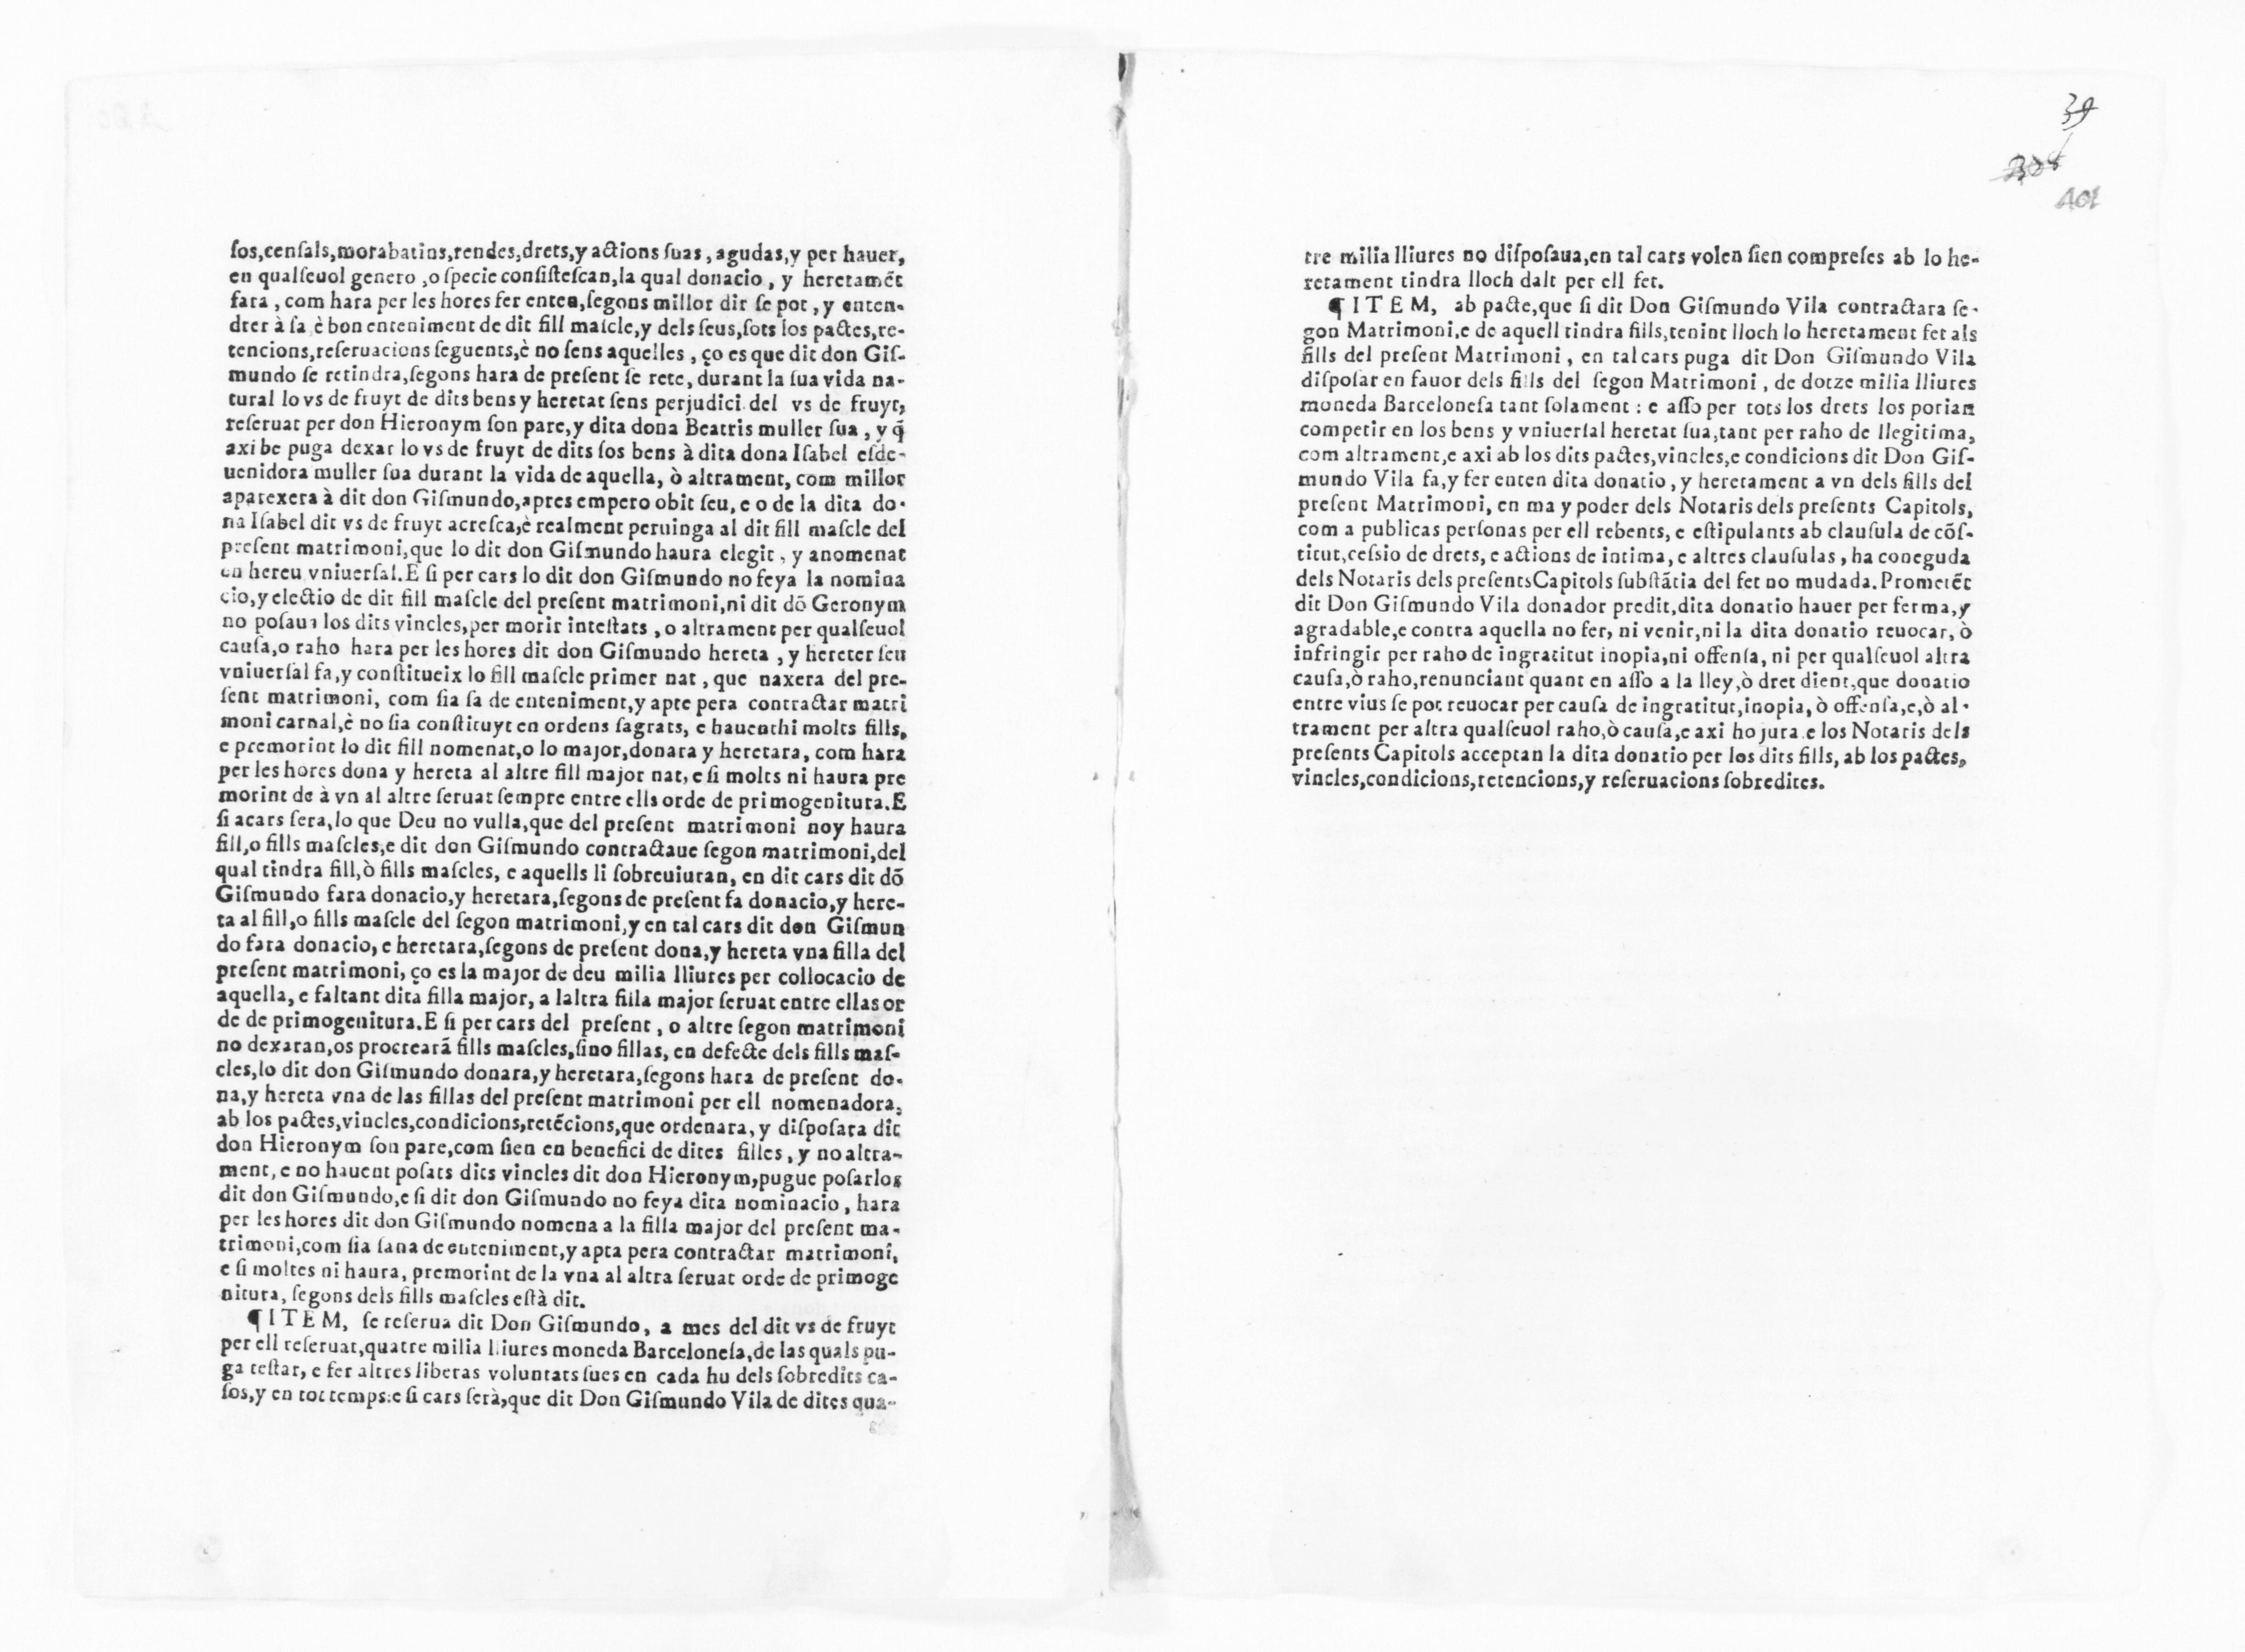 ſos,cenſals,morabatins,rendes,drets,y actions ſuas, agudas,y per hauer,
en qualſeuol genero ,o ſpecie conſiſteſcan,la qual donacio , y heretamẽt
fara , com hara per les hores fer enten,ſegons millor dir ſe pot , y enten-
drer à ſa è bon enteniment de dit fill maſcle,y dels ſeus,ſots los pactes,re-
tencions,reſeruacions ſeguents,è no ſens aquelles , ço es que dit don Giſ-
mundo ſe retindra,ſegons hara de preſent ſe rete, durant la ſua vida na-
tural lo vs de fruyt de dits bens y heretat ſens perjudici del vs de fruyt,
reſeruat per don Hieronym ſon pare,y dita dona Beatris muller ſua , y q̃
axi be puga dexar lo vs de fruyt de dits ſos bens à dita dona Iſabel eſde-
uenidora muller ſua durant la vida de aquella, ò altrament, com millor
aparexera à dit don Giſmundo,apres empero obit ſeu, e o de la dita do-
na Iſabel dit vs de fruyt acreſca,è realment peruinga al dit fill maſcle del
preſent matrimoni,que lo dit don Giſmundo haura elegit , y anomenat
en hereu vniuerſal.E ſi per cars lo dit don Giſmundo no feya la nomina
cio,y electio de dit fill maſcle del preſent matrimoni,ni dit dõ Geronym
no poſaua los dits vincles,per morir inteſtats , o altrament per qualſeuol
cauſa,o raho hara per les hores dit don Giſmundo hereta , y hereter ſeu
vniuerſal fa,y conſtitueix lo fill maſcle primer nat , que naxera del pre-
ſent matrimoni, com ſia ſa de enteniment,y apte pera contractar matri
moni carnal,è no ſia conſtituyt en ordens ſagrats, e hauenthi molts fills,
e premorint lo dit fill nomenat,o lo major,donara y heretara, com hara
per les hores dona y hereta al altre fill major nat, e ſi molts ni haura pre
morint de à vn al altre ſeruat ſempre entre ells orde de primogenitura.E
ſi a cars ſera,lo que Deu no vulla,que del preſent matrimoni noy haura
fill,o fills maſcles,e dit don Giſmundo contractaue ſegon matrimoni,del
qual tindra fill,ò fills maſcles, e aquells li ſobreuiuran, en dit cars dit dõ
Giſmundo fara donacio,y heretara,ſegons de preſent fa donacio,y here-
ta al fill,o fills maſcle del ſegon matrimoni,y en tal cars dit don Giſmun
do fara donacio, e heretara,ſegons de preſent dona,y hereta vna filla del
preſent matrimoni, ço es la major de deu milia lliures per collocacio de
aquella, e faltant dita filla major, a laltra filla major ſeruat entre ellas or
de de primogenitura.E ſi per cars del preſent , o altre ſegon matrimoni
no dexaran,os procrearã fills maſcles,ſino fillas, en defecte dels fills maſ-
cles,lo dit don Giſmundo donara,y heretara,ſegons hara de preſent do-
na,y hereta vna de las fillas del preſent matrimoni per ell nomenadora,
ab los pactes,vincles,condicions,retẽcions,que ordenara, y diſpoſara dit
don Hieronym ſon pare,com ſien en benefici de dites filles , y no altra-
ment, e no hauent poſats dits vincles dit don Hieronym,pugue poſarlos
dit don Giſmundo,e ſi dit don Giſmundo no feya dita nominacio , hara
per les hores dit don Giſmundo nomena a la filla major del preſent ma-
trimoni,com ſia ſana de enteniment,y apta pera contractar matrimoni,
e ſi moltes ni haura, premorint de la vna al altra ſeruat orde de primoge
nitura, ſegons dels fills maſcles eſtà dit.
¶ITEM, ſe reſerua dit Don Giſmundo, a mes del dit vs de fruyt
per ell reſeruat,quatre milia lliures moneda Barceloneſa,de las quals pu-
ga teſtar, e fer altres liberas voluntats ſues en cada hu dels ſobredits ca-
ſos,y en tot temps:e ſi cars ſerà,que dit Don Giſmundo Vila de dites qua-
tre milia lliures no diſpoſaua,en tal cars volen ſien compreſes ab lo he-
retament tindra lloch dalt per ell fet.
¶ITEM, ab pacte,que ſi dit Don Giſmundo Vila contractara ſe-
gon Matrimoni,e de aquell tindra fiills,tenint lloch lo heretament fet als
fills del preſent Matrimoni , en tal cars puga dit Don Giſmundo Vila
diſpoſar en fauor dels fills del ſegon Matrimoni , de dotze milia lliures
moneda Barceloneſa tant ſolament : e aſſo per tots los drets los porian
competir en los bens y vniuerſal heretat ſua,tant per raho de llegitima,
com altrament,e axi ab los dits pactes,vincles,e condicions dit Don Giſ-
mundo Vila fa,y fer enten dita donatio , y heretament a vn dels fills del
preſent Matrimoni, en ma y poder dels Notaris dels preſents Capitols,
com a publicas perſonas per ell rebents, e eſtipulants ab clauſula de cõſ-
titut,ceſsio de drets, e actions de intima, e altres clauſulas , ha coneguda
dels Notaris dels preſentsCapitols ſubſtãtia del fet no mudada.Prometẽt
dit Don Giſmundo Vila donador predit,dita donatio hauer per ferma,y
agradable,e contra aquella no fer, ni venir,ni la dita donatio reuocar, ò
infringir per raho de ingratitut inopia,ni offenſa, ni per qualſeuol altra
cauſa,ò raho,renunciant quant en aſſo a la lley,ò dret dient,que donatio
entre vius ſe pot reuocar per cauſa de ingratitut,inopia, ò offenſa,e,ò al-
trament per altra qualſeuol raho,ò cauſa,e axi ho jura e los Notaris dels
preſents Capitols acceptan la dita donatio per los dits fills, ab los pactes,
vincles,condicions,retencions,y reſeruacions ſobredites.
39
401